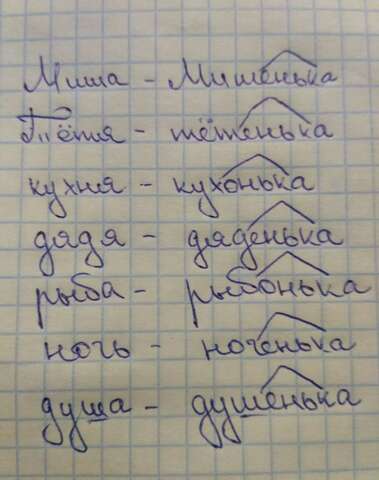 Миша - Мишенька
Тётя - тётенька
кухня - кухонька
дядя - дяденька
рыба - рыбонька
ночь - ноченька
душа - душенька